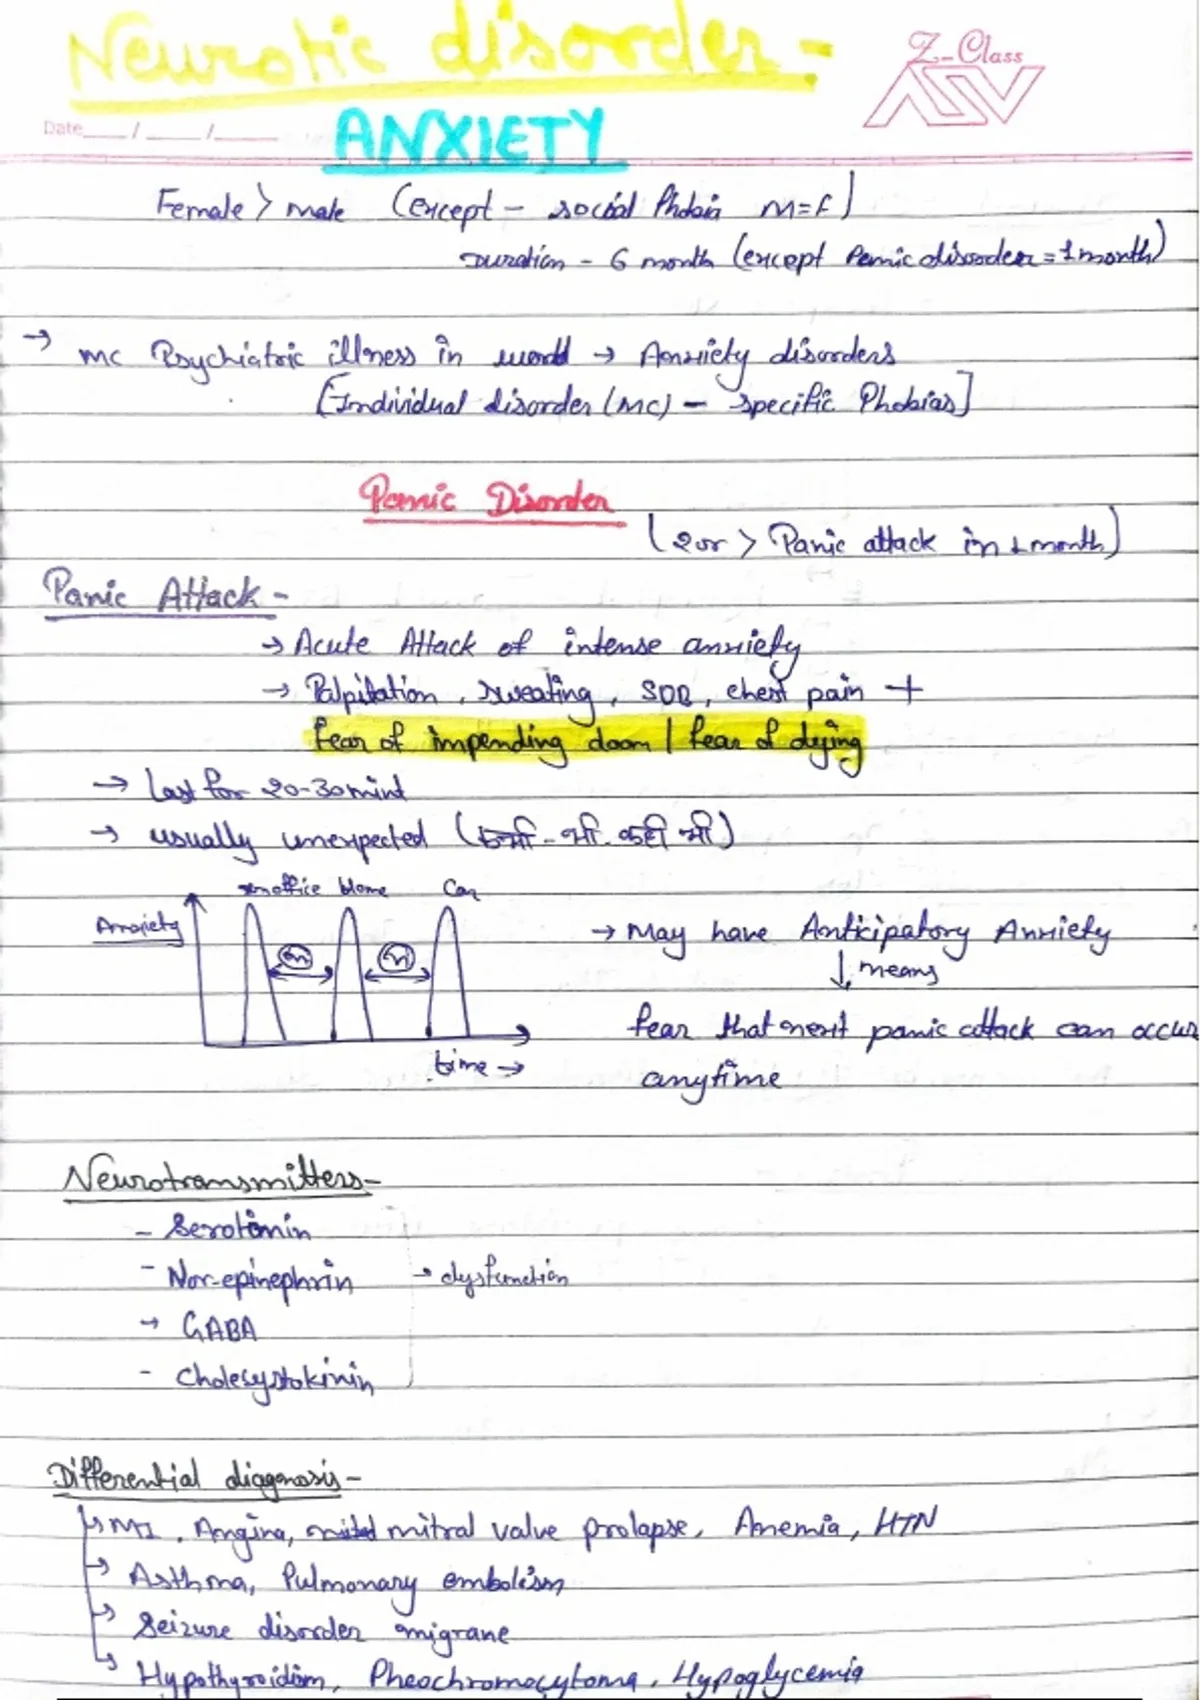 Neurotic disorder -
Z-Class
Date / /
ANXIETY
Female > male (except - social Phobia M=F)
Duration - 6 month (except Panic disorder = 1 month)
→ mc Psychiatric illness in world → Anxiety disorders
[Individual disorder (mc) - specific Phobias]
Panic Disorder
(2 or > Panic attack in 1 month)
Panic Attack -
→ Acute Attack of intense anxiety
→ Palpitation, sweating, SOB, chest pain +
fear of impending doom / fear of dying
→ Last for 20-30 mint
→ usually unexpected (कभी-भी कही भी)
office Home Car
Anxiety
→ May have Anticipatory Anxiety
↓ means
fear that next panic attack can occur
time →
anytime
Neurotransmitters -
- Serotonin
- Nor-epinephrin → dysfunction
→ GABA
- Cholecystokinin
Differential diagnosis -
↳ MI, Angina, mitral valve prolapse, Anemia, HTN
↳ Asthma, Pulmonary embolism
↳ Seizure disorder migrane
↳ Hypothyroidism, Pheochromocytoma, Hypoglycemia